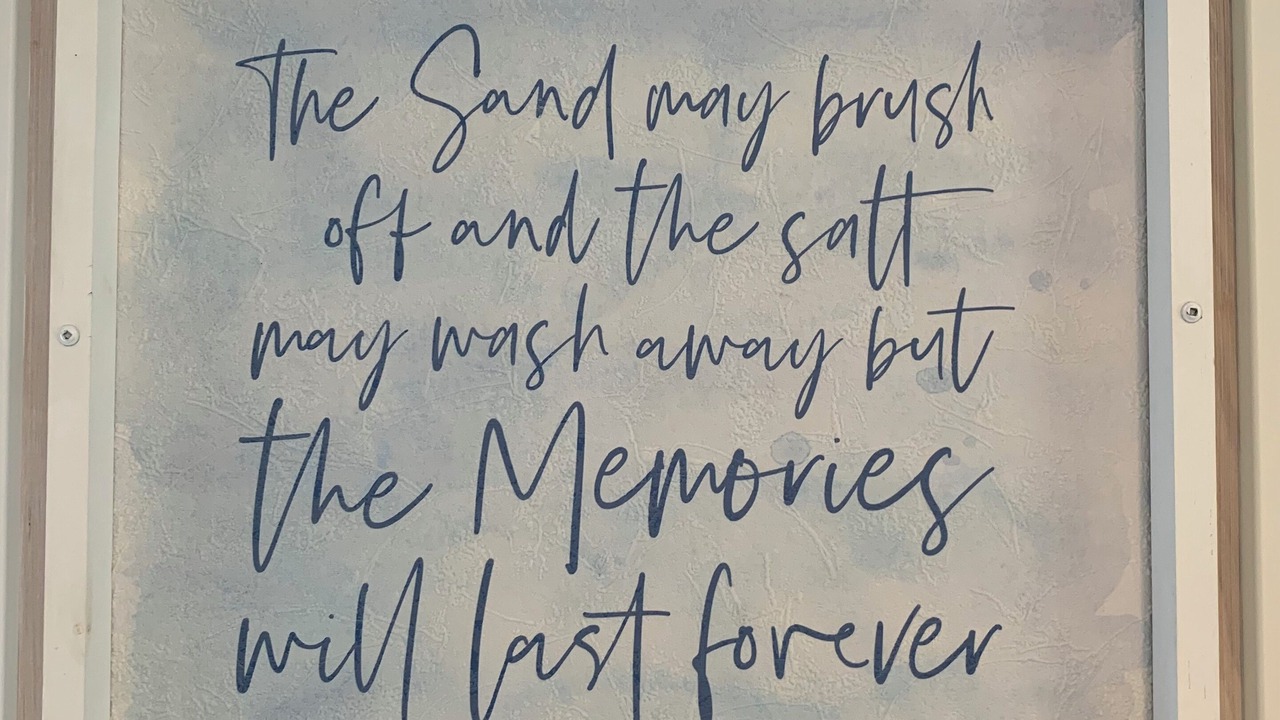 The Sand may brush
off and the salt
may wash away but
the Memories
will last forever